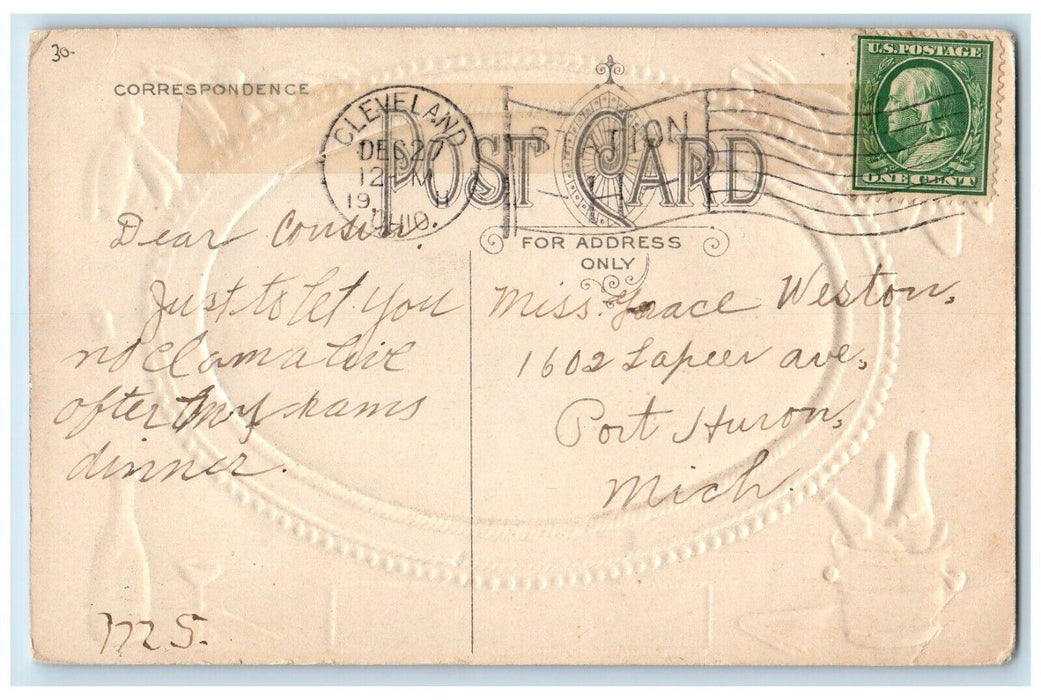 30-
U.S. POSTAGE
ONE CENT
CORRESPONDENCE
CLEVELAND
DEC 27
12 M
19 11
OHIO.
POST CARD
FOR ADDRESS
ONLY
Dear Cousin.
Just to let you
no I am alive
after my xams
dinner.
M S.
Miss. Grace Weston,
1602 Lapeer ave,
Port Huron,
Mich.